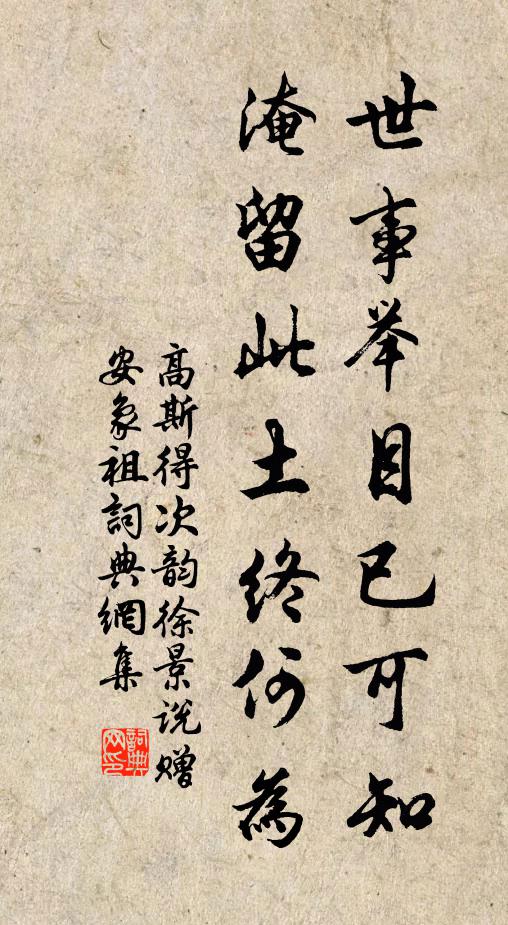 世事举目已可知
淹留此土终何為
高斯得次韵徐景说赠
安象祖詞典網集
詞典